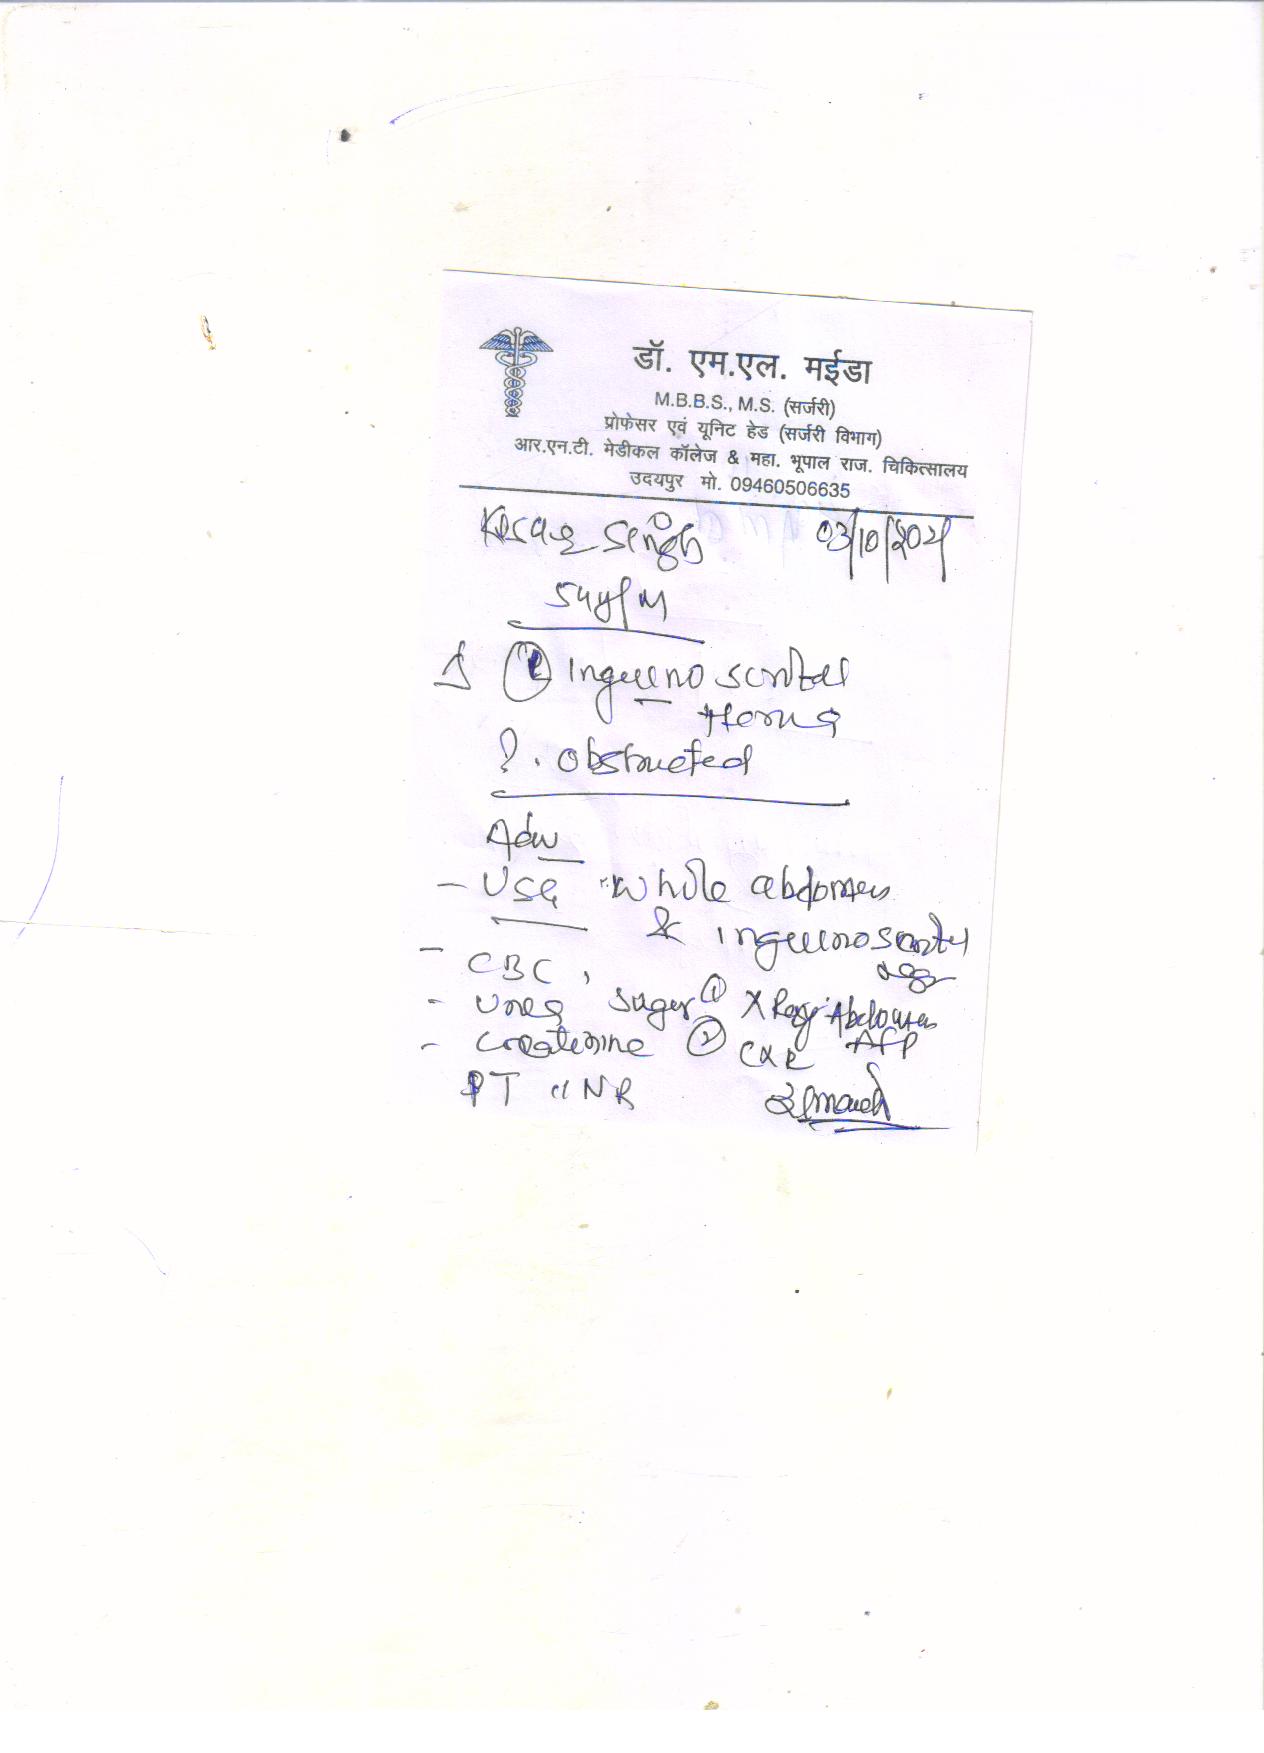 डॉ. एम.एल. मईडा
M.B.B.S., M.S. (सर्जरी)
प्रोफेसर एवं यूनिट हेड (सर्जरी विभाग)
आर.एन.टी. मेडीकल कॉलेज & महा. भूपाल राज. चिकित्सालय
उदयपुर मो. 09460506635
Kesar Singh 03/10/202
54y/M
Inguino scrotal
Hernia
? . obstructed
Adv
- USG whole abdomen
& inguinoscrotal
- CBC,
- Urea Sugar ① X Ray Abdomen
- Creatinine ② CXR AP
PT INR